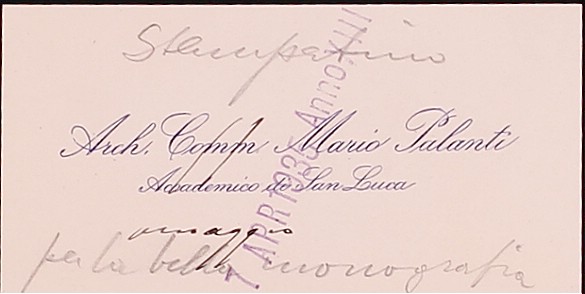 Stampatino
Arch. Comm. Mario Palanti
Accademico di San Luca
omaggio
per la bella monografia
7 APR 1935 Anno XIII